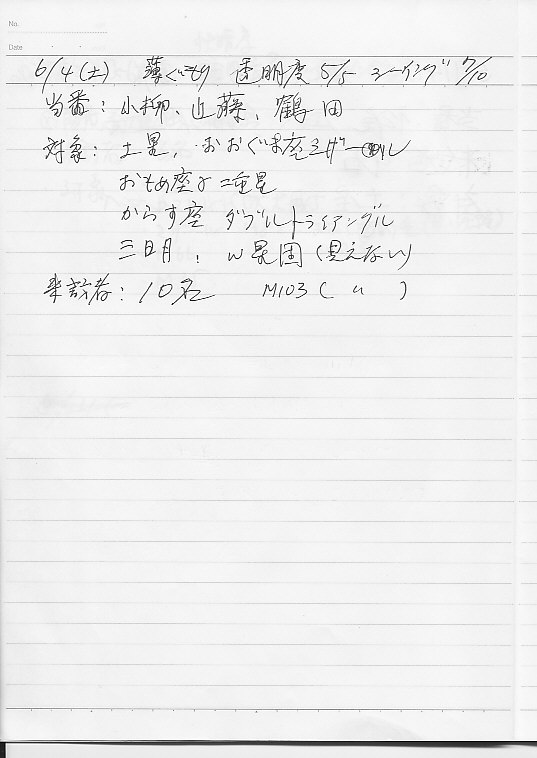 No.
Date
6/4(土) 薄ぐもり 透明度5/5 シーイング7/10
当番:小柳、近藤、鶴田
対象:土星、おおぐま座ミザール
おとめ座γ二重星
からす座 ダブルトライアングル
三日月、W星団(見えない)
来訪者:10名 M103(〃)